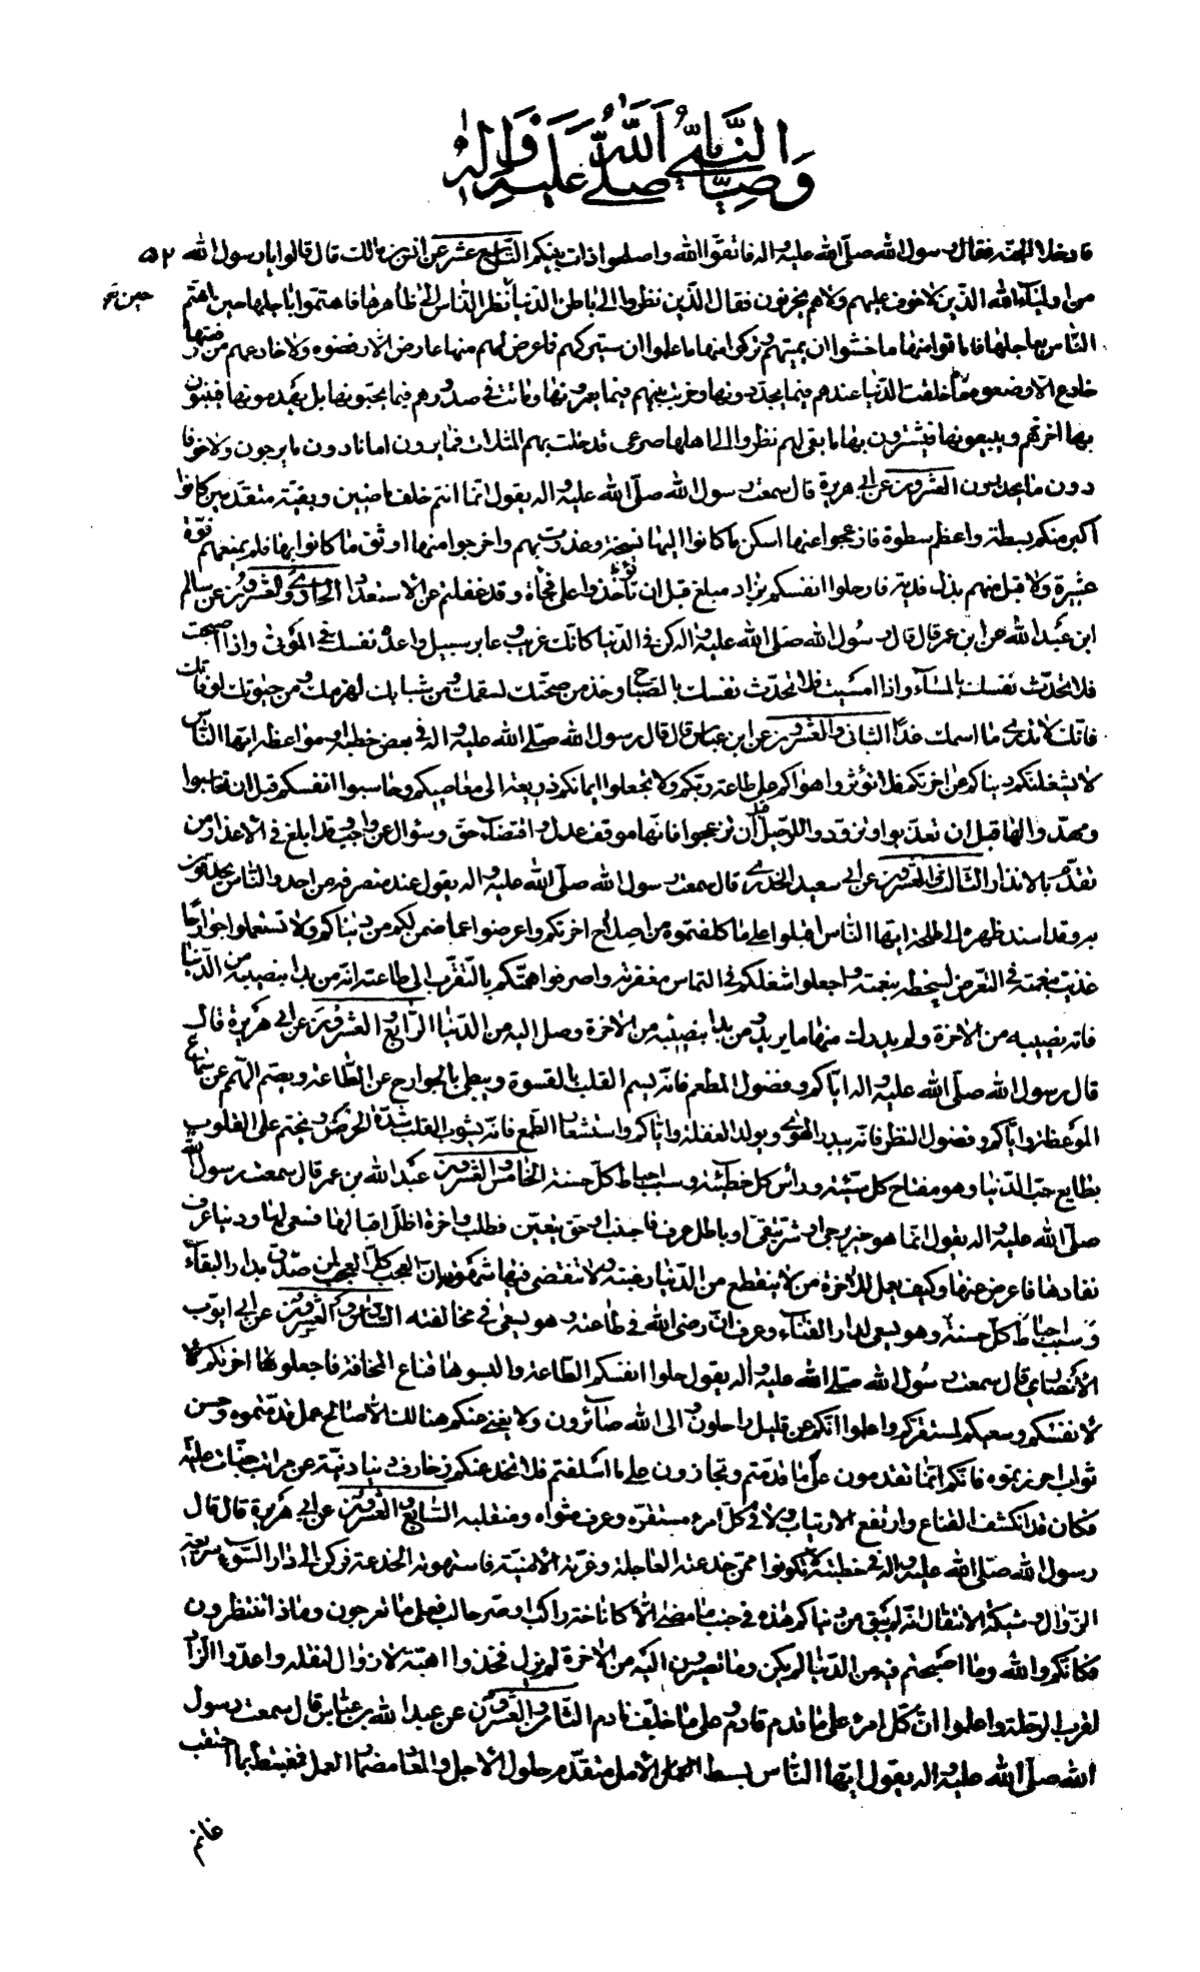 وصايا النبي صلى الله عليه واله
٥٢
فادخلا الجنة فقال رسول الله صلّى الله عليه واله فاتقوا الله واصلحوا ذات بينكم التاسع عشر عن انس بن مالك قال قالوا يا رسول الله
من اولياء الله الذين لا خوف عليهم ولا هم يحزنون فقال الذين نظروا الى باطن الدنيا حين نظر الناس الى ظاهرها فاهتموا باجلها حين اهتم
الناس بعاجلها فاماتوا منها ما خشوا ان يميتهم وتركوا منها ما علموا ان سيتركهم فما عرض لهم منها عارض الا رفضوه ولا خادعهم من رفعتها
خادع الا وضعوه خلقت الدنيا عندهم فما يجددونها وخربت بينهم فما يعمرونها وماتت في صدورهم فما يحبونها بل يهدمونها فيبنون
بها اخرتهم ويبيعونها فيشترون بها ما بقى لهم نظروا الى اهلها صرعى قد حلت بهم المثلات فما يرون امانا دون ما يرجون ولا خوفا
دون ما يحذرون العشرون عن ابى هريرة قال سمعت رسول الله صلّى الله عليه واله يقول انما انتم خلف ماضين وبقية متقدمين كانوا
اكبر منكم بسطة واعظم سطوة فازعجوا عنها اسكن ما كانوا اليها وغدرت بهم واخرجوا منها اوثق ما كانوا بها فلم يمنعهم قوة
عشيرة ولا قبل منهم بذل فدية فارحلوا انفسكم بزاد مبلغ قبل ان تأخذوا على فجأة وقد غفلتم عن الاستعداد الحادى والعشرون عن سالم
ابن عبد الله عن ابن عمر قال قال رسول الله صلّى الله عليه واله كن في الدنيا كانك غريب او عابر سبيل واعدد نفسك في الموتى واذا اصبحت
فلا تحدث نفسك بالمساء واذا امسيت فلا تحدث نفسك بالصباح وخذ من صحتك لسقمك ومن شبابك لهرمك ومن حيوتك لوفاتك
فانك لا تدرى ما اسمك غدا الثانى والعشرون عن ابن عباس قال قال رسول الله صلّى الله عليه واله في بعض خطبه او مواعظه ايها الناس
لا يشغلنكم دنياكم عن اخرتكم فلا تؤثروا هواكم على طاعة ربكم ولا تجعلوا ايمانكم ذريعة الى معاصيكم وحاسبوا انفسكم قبل ان تحاسبوا
ومهدوا لها قبل ان تعذبوا وتزودوا للرحيل قبل ان تزعجوا فانها موقف عدل واقتضاء حق وسؤال عن واجب وقد ابلغ في الاعذار من
تقدم بالانذار الثالث والعشرون عن ابى سعيد الخدرى قال سمعت رسول الله صلّى الله عليه واله يقول عند منصرفه من احد والناس يحدقون
به وقد اسند ظهره الى طلحة ايها الناس اقبلوا على ما كلفتموه من اصلاح اخرتكم واعرضوا عما ضمن لكم من دنياكم ولا تستعملوا جوارحا
غذيت بنعمته في التعرض لسخطه بنقمته واجعلوا شغلكم في التماس مغفرته واصرفوا همتكم بالتقرب الى طاعته انه من بدا بنصيبه من الدنيا
فاته نصيبه من الاخرة ولم يدرك منها ما يريد ومن بدا بنصيبه من الاخرة وصل اليه من الدنيا الرابع والعشرون عن ابى هريرة قال
قال رسول الله صلّى الله عليه واله اياكم وفضول المطعم فانه يسم القلب بالقسوة ويبطى بالجوارح عن الطاعة ويصم الهمم عن سماع
الموعظة واياكم وفضول النظر فانه يبدر الهوى ويولد الغفلة واياكم واستشعار الطمع فانه يشوب القلب شدة الحرص ويختم على القلوب
بطابع حب الدنيا وهو مفتاح كل سيئة وراس كل خطيئة وسبب احباط كل حسنة الخامس والعشرون عبد الله بن عمر قال سمعت رسول الله
صلّى الله عليه واله يقول انما هو خير يرجى او شر يتقى او باطل عرف فاجتنب او حق يتعين فطلب واخرة اظل اقبالها فسعى لها ودنيا عرف
نفادها فاعرض عنها وكيف يعمل للاخرة من لا ينقطع من الدنيا رغبته ولا تنقضى فيها شهوته ان العجب كل العجب لمن صدق بدار البقاء
وسبب احباط كل حسنة وهو يسعى لدار الفناء وعرف ان رضى الله في طاعته وهو يسعى في مخالفته السادس والعشرون عن ابى ايوب
الانصارى قال سمعت رسول الله صلّى الله عليه واله يقول حلوا انفسكم الطاعة والبسوها قناع المخافة فاجعلوا اخرتكم
لانفسكم وسعيكم لمستقركم واعلموا انكم عن قليل راحلون والى الله صائرون ولا يغنى عنكم هنالك الا صالح عمل قدمتموه وحسن
ثواب احرزتموه فانكم انما تقدمون على ما قدمتم وتجازون على ما اسلفتم فلا تخدعنكم زخارف دنيا دنية عن مراتب جنات علية
فكان قد انكشف القناع وارتفع الارتياب ولاقى كل امرء مستقره وعرف مثواه ومنقلبه السابع والعشرون عن ابى هريرة قال قال
رسول الله صلّى الله عليه واله في خطبته لا تكونوا ممن خدعته العاجلة وغرته الامنية فاستهوته الخدعة فركن الى دار السوء سريعة
الزوال وشيكة الانتقال انه لم يبق من دنياكم هذه في جنب ما مضى الا كاناخة راكب او صر حالب فعلى ما تعرجون وماذا تنتظرون
فكانكم والله وما اصبحتم فيه من الدنيا لم يكن وما تصيرون اليه من الاخرة لم يزل فخذوا اهبة لازوال لنقله واعدوا الزاد
لقرب الرحلة واعلموا ان كل امرء على ما قدم قادم وعلى ما خلف نادم الثامن والعشرون عن عبد الله بن عباس قال سمعت رسول
الله صلّى الله عليه واله يقول ايها الناس بسط الامل متقدم حلول الاجل والمعاد مضمار العمل فمغتبط بما احتقب
غانم